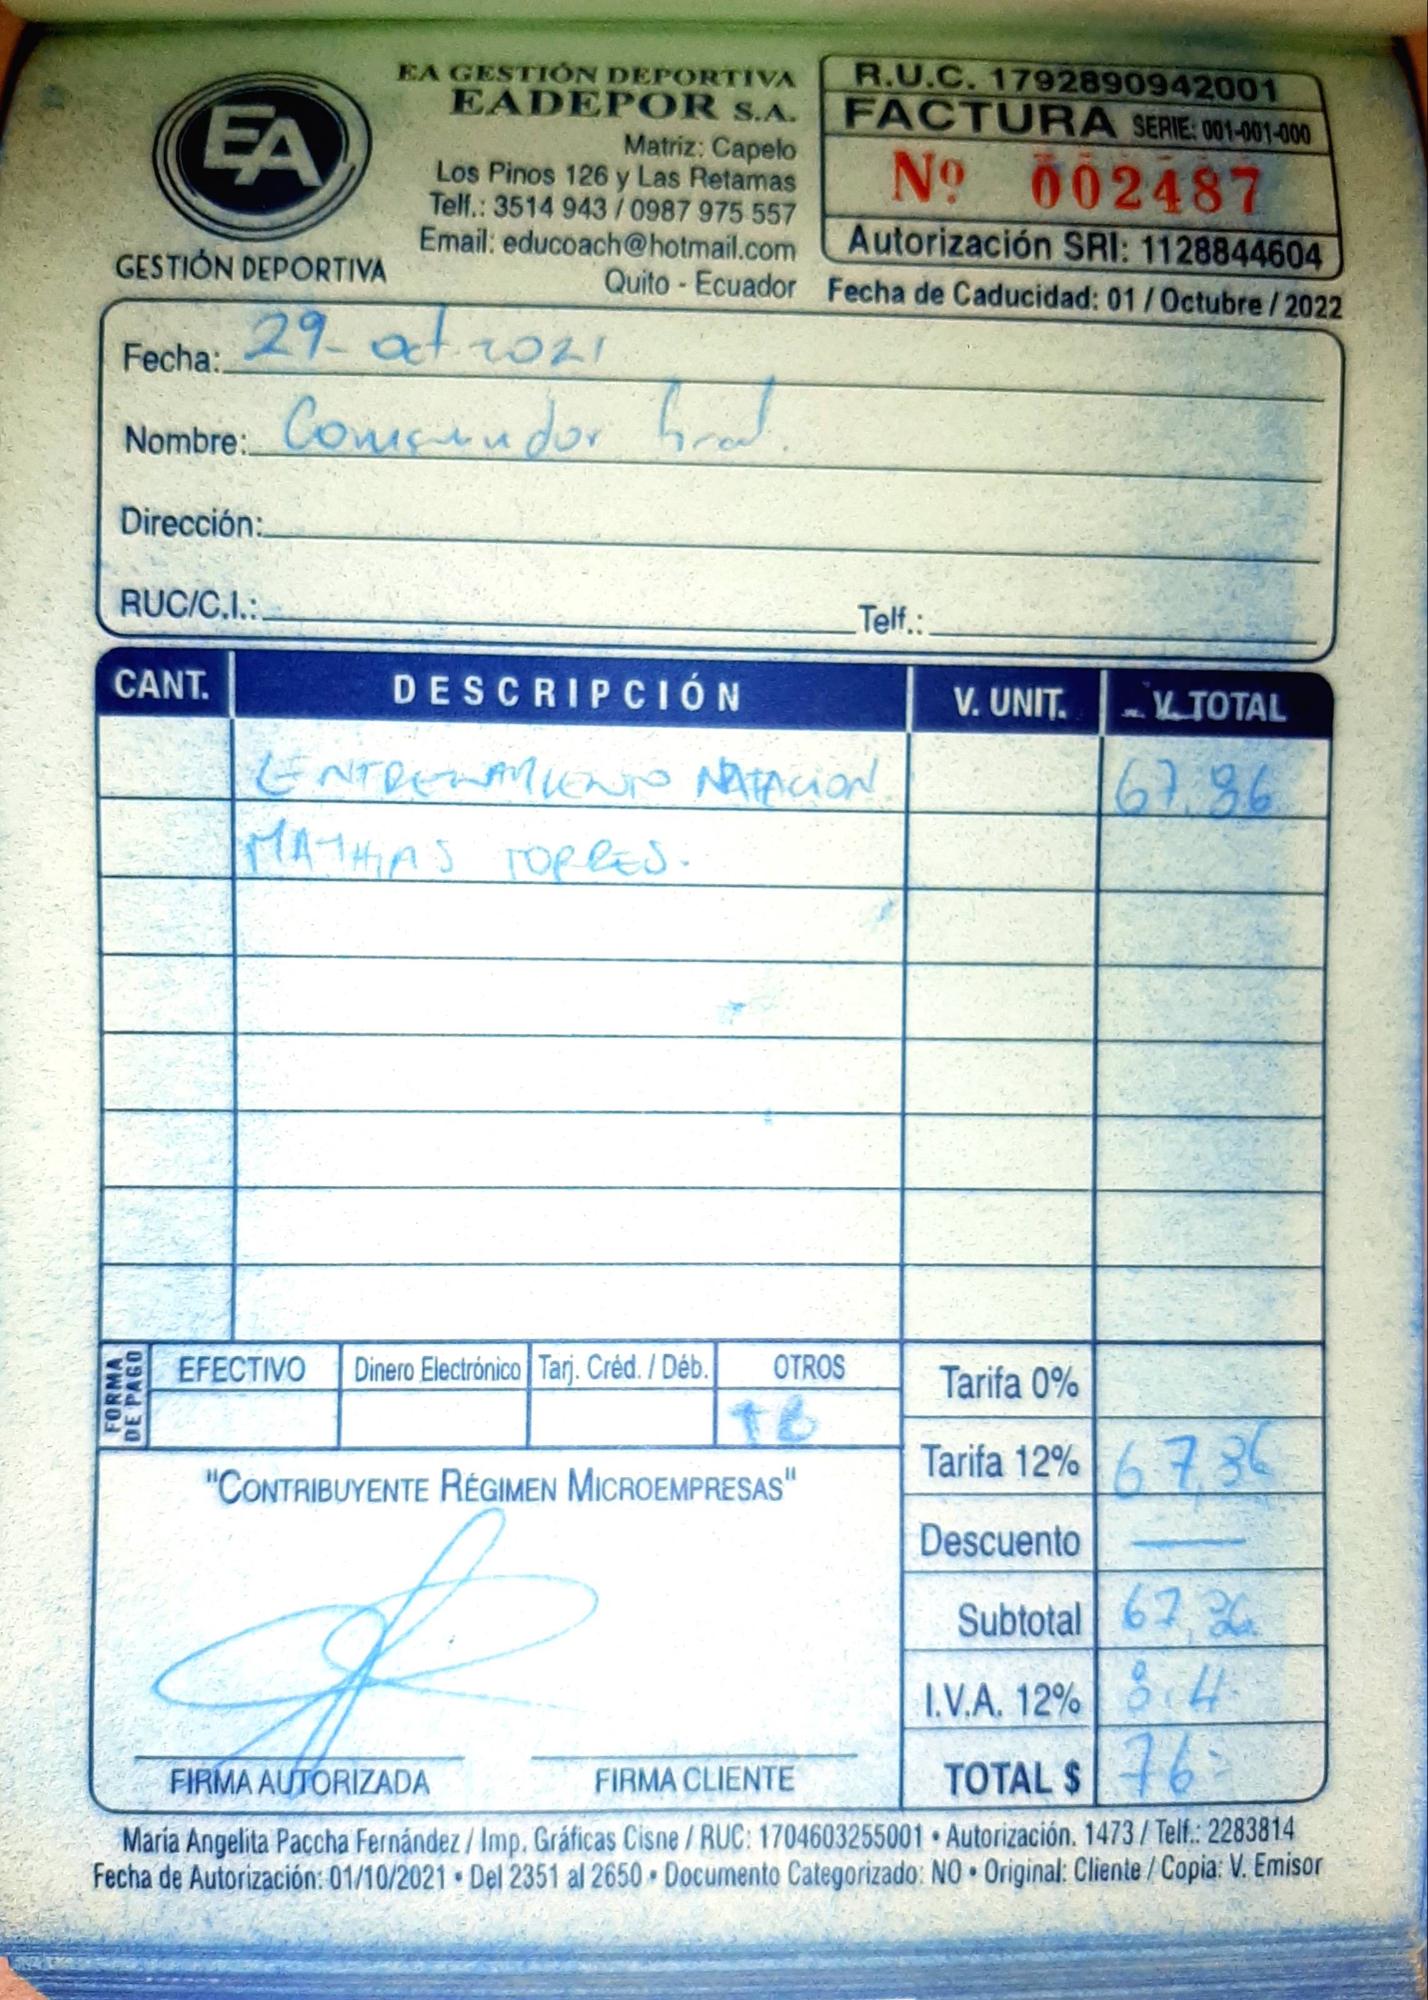 EA
GESTIÓN DEPORTIVA
EA GESTIÓN DEPORTIVA
EADEPOR S.A.
Matriz: Capelo
Los Pinos 126 y Las Retamas
Telf.: 3514 943 / 0987 975 557
Email: educoach@hotmail.com
Quito - Ecuador
R.U.C. 1792890942001
FACTURA SERIE: 001-001-000
Nº 002487
Autorización SRI: 1128844604
Fecha de Caducidad: 01 / Octubre / 2022
Fecha: 29- oct 2021
Nombre:
Dirección:
RUC/C.I.: Telf.:
CANT. DESCRIPCIÓN V. UNIT. V. TOTAL
ENTRENAMIENTO NATACION 67,86
MATHIAS TORRES.
FORMA DE PAGO EFECTIVO Dinero Electrónico Tarj. Créd. / Déb. OTROS
TB
Tarifa 0%
Tarifa 12% 67,86
Descuento —
Subtotal 67,86
I.V.A. 12% 8.4
TOTAL $ 76
"CONTRIBUYENTE RÉGIMEN MICROEMPRESAS"
FIRMA AUTORIZADA FIRMA CLIENTE
María Angelita Paccha Fernández / Imp. Gráficas Cisne / RUC: 1704603255001 • Autorización. 1473 / Telf.: 2283814
Fecha de Autorización: 01/10/2021 • Del 2351 al 2650 • Documento Categorizado: NO • Original: Cliente / Copia: V. Emisor